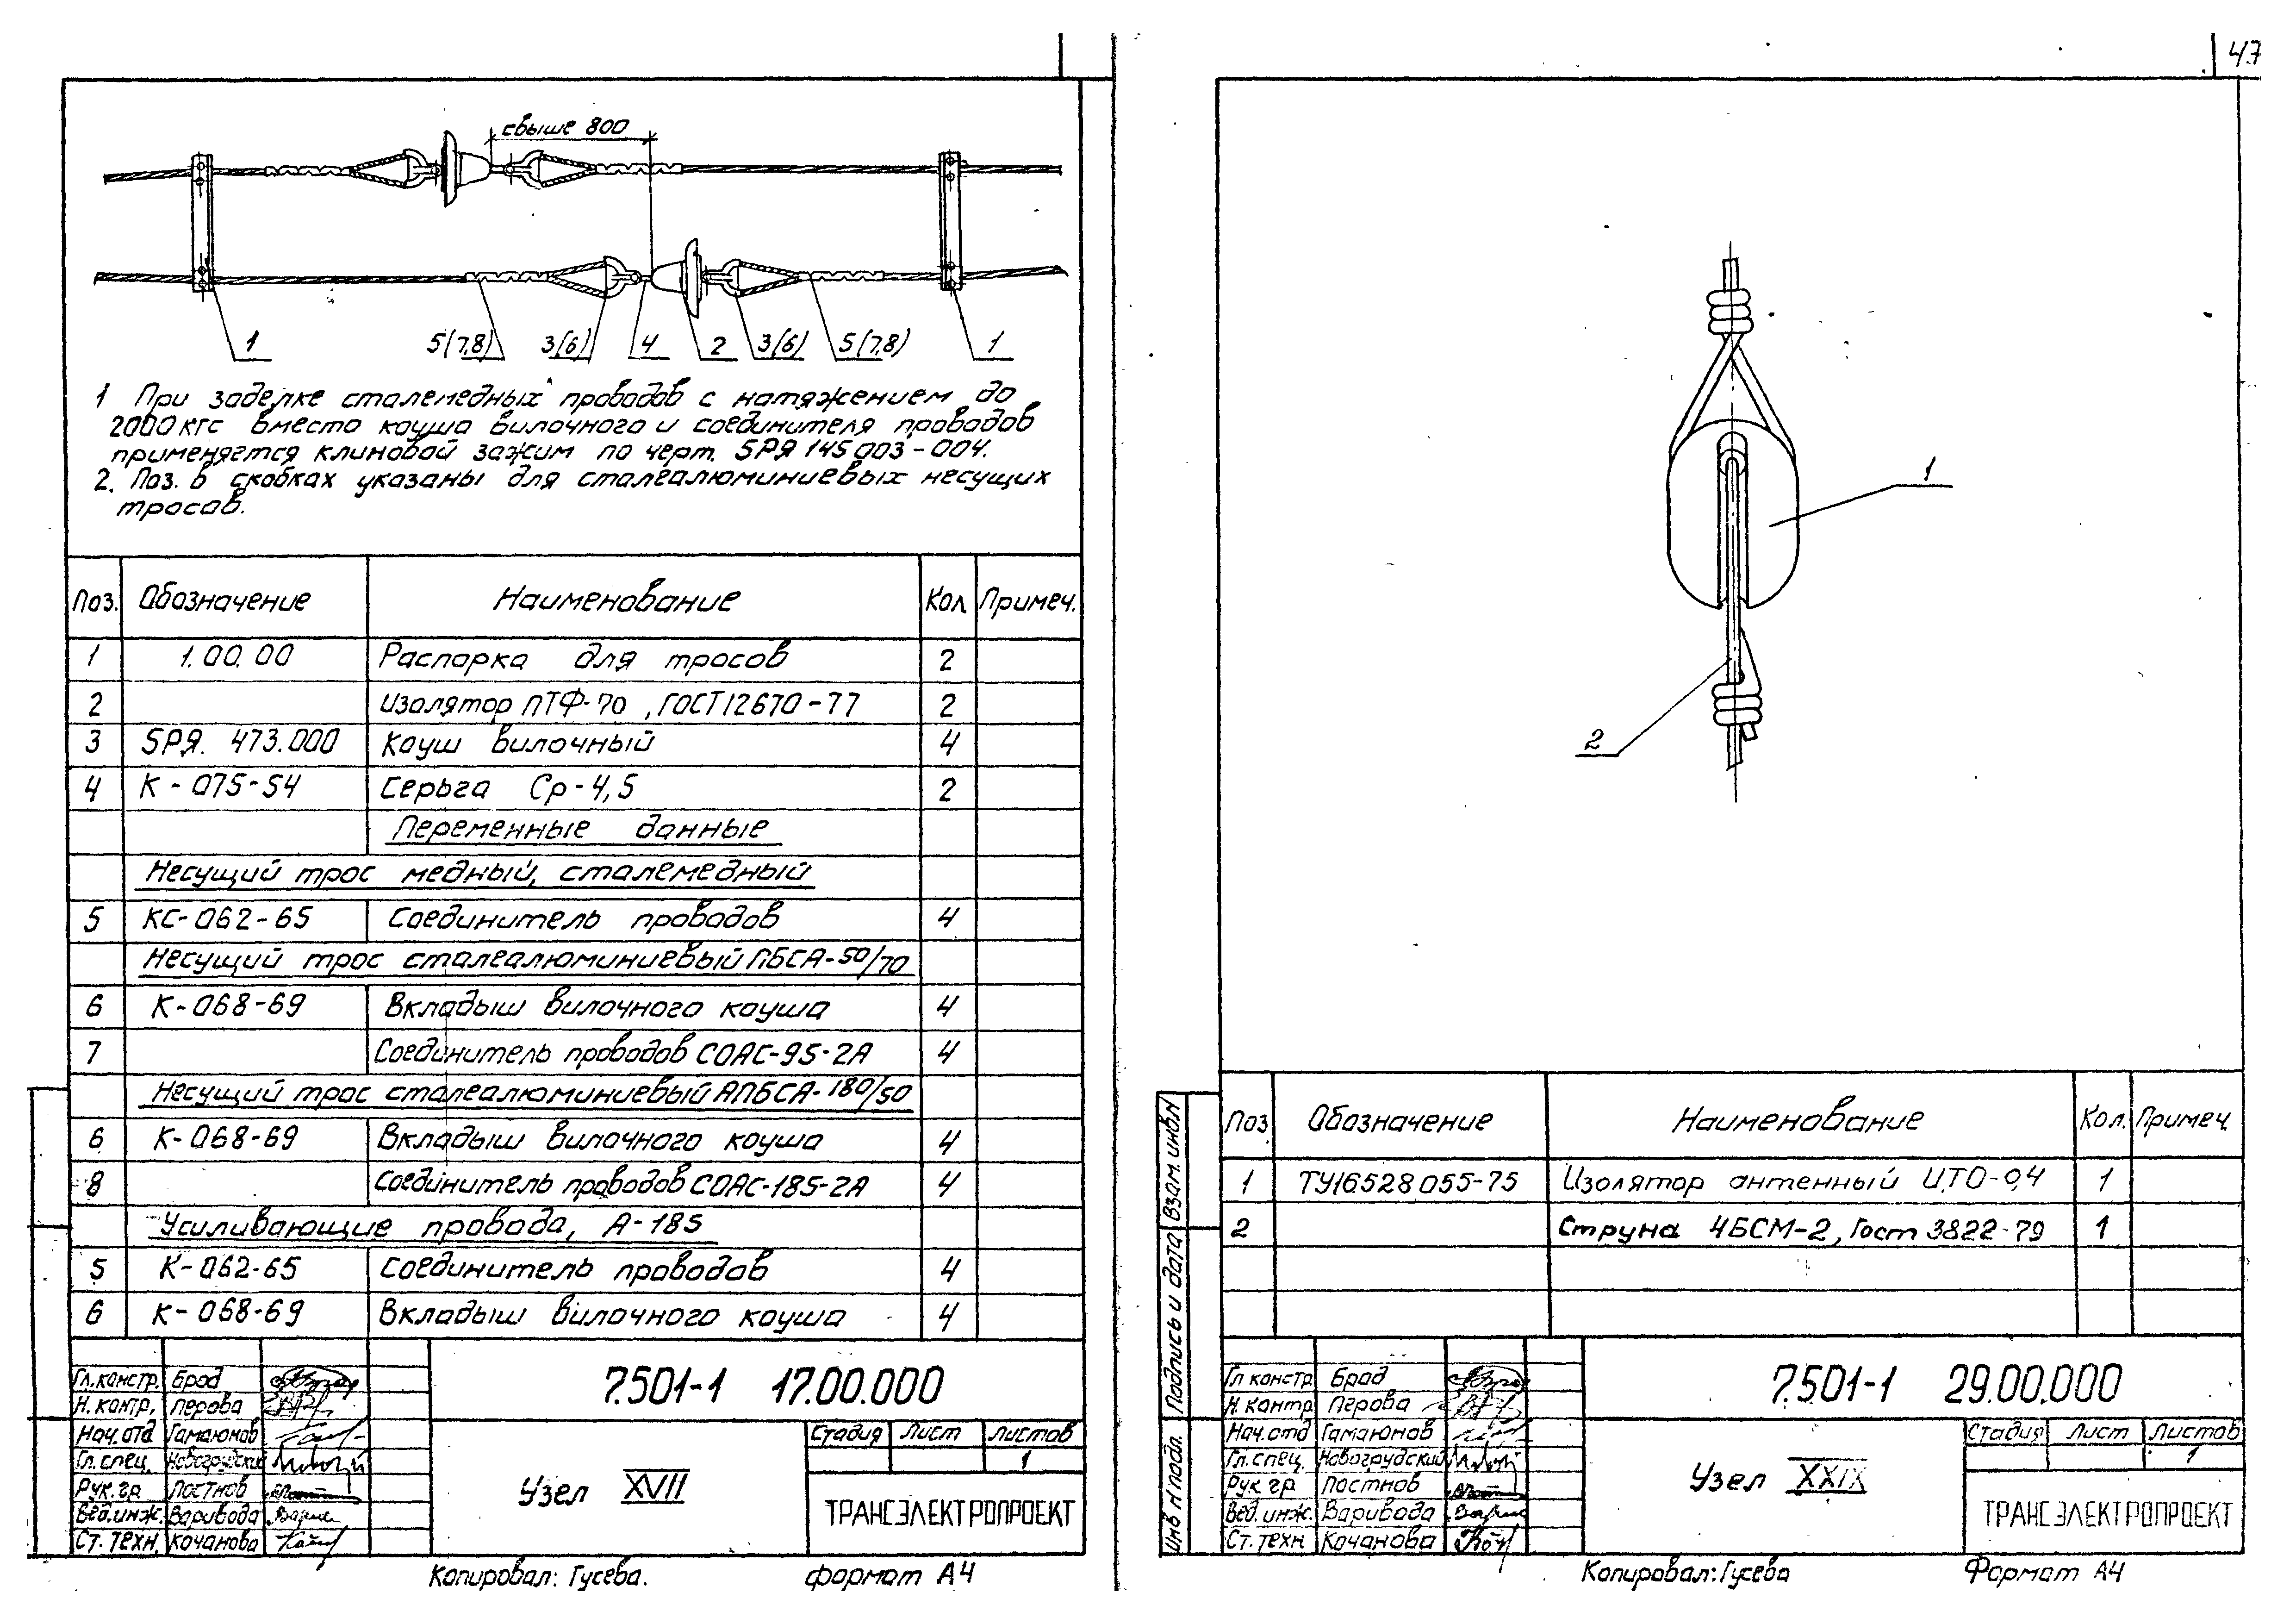 47
свыше 800
1 5(7,8) 3(6) 4 2 3(6) 5(7,8) 1
1 При заделке сталемедных проводов с натяжением до
2000 кгс вместо коуша вилочного и соединителя проводов
применяется клиновой зажим по черт. 5РЯ 145 003-004.
2. Поз. в скобках указаны для сталеалюминиевых несущих
тросов.
Поз. Обозначение Наименование Кол Примеч.
1 1.00.00 Распорка для тросов 2
2 Изолятор ПТФ-70, ГОСТ 12670-77 2
3 5РЯ. 473.000 Коуш вилочный 4
4 К-075-54 Серьга Ср-4,5 2
Переменные данные
Несущий трос медный, сталемедный
5 КС-062-65 Соединитель проводов 4
Несущий трос сталеалюминиевый ПБСА-50/70
6 К-068-69 Вкладыш вилочного коуша 4
7 Соединитель проводов СОАС-95-2А 4
Несущий трос сталеалюминиевый АПБСА-180/50
6 К-068-69 Вкладыш вилочного коуша 4
8 Соединитель проводов СОАС-185-2А 4
Усиливающие провода, А-185
5 К-062-65 Соединитель проводов 4
6 К-068-69 Вкладыш вилочного коуша 4
Гл.констр. Брод
Н. контр. Перова
Нач.отд Гамаюнов
Гл.спец. Новогрудский
Рук.гр Постнов
Вед.инж. Варивода
Ст. техн. Кочанова
7.501-1 17.00.000
Узел XVII
Стадия Лист Листов
1
ТРАНСЭЛЕКТРОПРОЕКТ
Копировал: Гусева. формат А4
1
2
Поз Обозначение Наименование Кол. Примеч.
1 ТУ16.528 055-75 Изолятор антенный ИТО-0,4 1
2 Струна 4БСМ-2, Гост 3822-79 1
Взам. инв.N
Подпись и дата
Инв N подл.
Гл констр. Брод
Н. контр Перова
Нач.отд Гамаюнов
Гл.спец. Новогрудский
Рук гр Постнов
Вед. инж. Варивода
Ст.техн Кочанова
7.501-1 29.00.000
Узел XXIX
Стадия Лист Листов
1
ТРАНСЭЛЕКТРОПРОЕКТ
Копировал: Гусева Формат А4